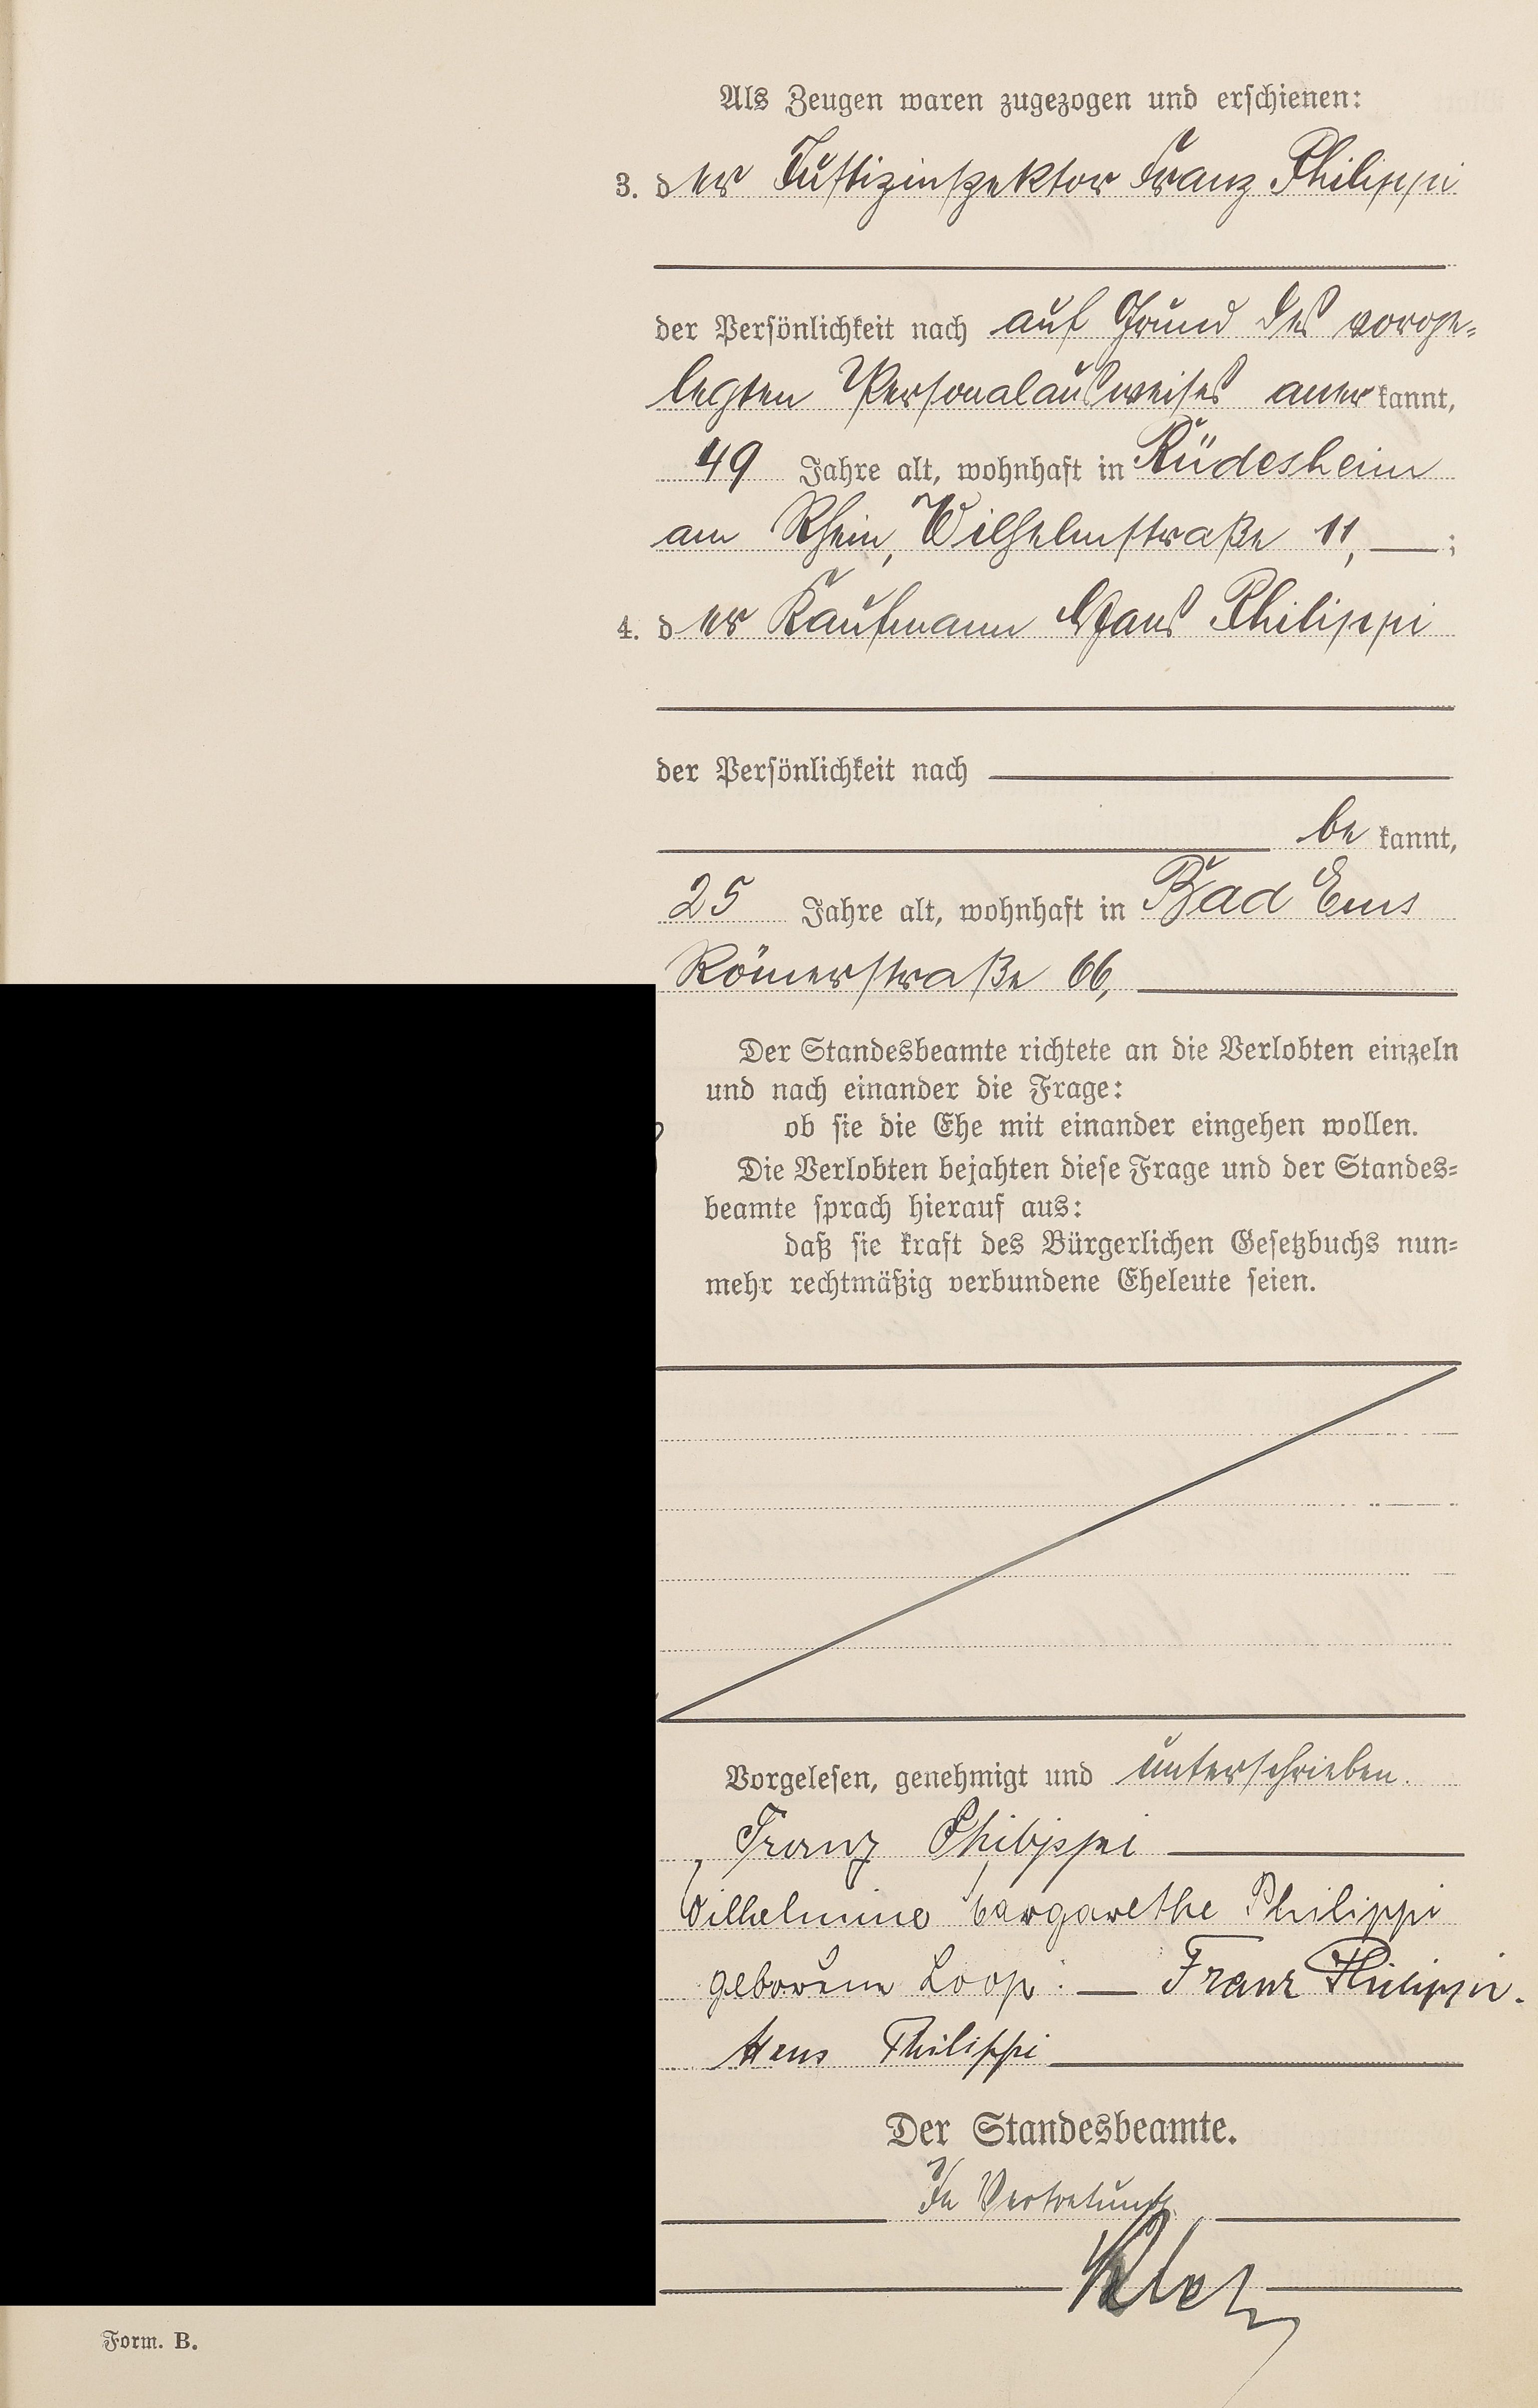 Als Zeugen waren zugezogen und erschienen:
3. der Justizinspektor Franz Philippi
der Persönlichkeit nach auf Grund des vorge-
legten Personalausweises anerkannt,
49 Jahre alt, wohnhaft in Rüdesheim
am Rhein, Wilhelmstraße 11, ;
4. der Kaufmann Hans Philippi
der Persönlichkeit nach
bekannt,
25 Jahre alt, wohnhaft in Bad Ems
Römerstraße 66,
Der Standesbeamte richtete an die Verlobten einzeln
und nach einander die Frage:
ob sie die Ehe mit einander eingehen wollen.
Die Verlobten bejahten diese Frage und der Standes-
beamte sprach hierauf aus:
daß sie kraft des Bürgerlichen Gesetzbuchs nun-
mehr rechtmäßig verbundene Eheleute seien.
Vorgelesen, genehmigt und unterschrieben.
Franz Philippi
Wilhelmine Margarethe Philippi
geborene Loop. — Franz Philippi.
Hans Philippi
Der Standesbeamte.
In Vertretung
Form. B.